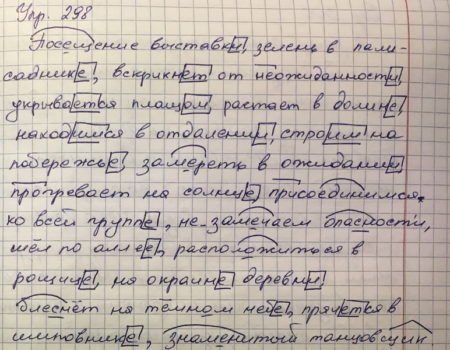 Упр. 298
Посещение выставки, зелень в пали-
саднике, вскрикнет от неожиданности,
укрывается плащом, растает в долине,
находимся в отдалении, строим на
побережье, замереть в ожидании
прогревает на солнце, присоединимся
ко всей группе, не замечаем опасности,
шёл по аллее, расположиться в
рощице, на окраине деревни
блеснёт на тёмном небе, прячется в
шиповнике, знаменитый танцовщик